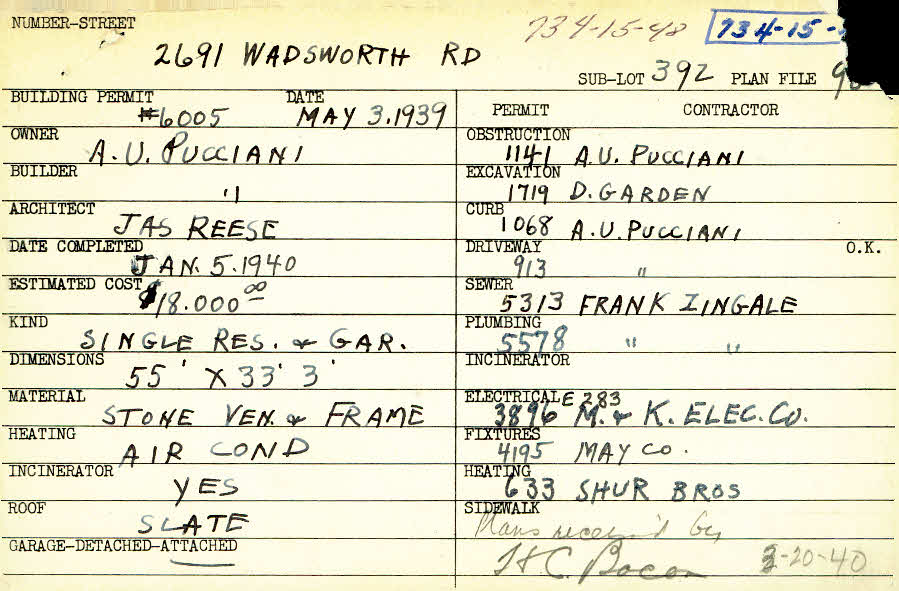 NUMBER-STREET 734-15-48 734-15-
2691 WADSWORTH RD
SUB-LOT 392 PLAN FILE
BUILDING PERMIT DATE
#6005 MAY 3.1939
OWNER
A.U. PUCCIANI
BUILDER
"
ARCHITECT
JAS REESE
DATE COMPLETED
JAN. 5.1940
ESTIMATED COST
$18.000 00
KIND
SINGLE RES. & GAR.
DIMENSIONS
55' X 33' 3'
MATERIAL
STONE VEN. & FRAME
HEATING
AIR COND
INCINERATOR
YES
ROOF
SLATE
GARAGE-DETACHED-ATTACHED
PERMIT CONTRACTOR
OBSTRUCTION
1141 A.U. PUCCIANI
EXCAVATION
1719 D. GARDEN
CURB
1068 A.U. PUCCIANI
DRIVEWAY O.K.
913 "
SEWER
5313 FRANK ZINGALE
PLUMBING
5578 " "
INCINERATOR
ELECTRICAL E 283
3896 M. & K. ELEC. CO.
FIXTURES
4195 MAY CO.
HEATING
633 SHUR BROS
SIDEWALK
Plans receiv'd by
H C. Bacon 3-20-40